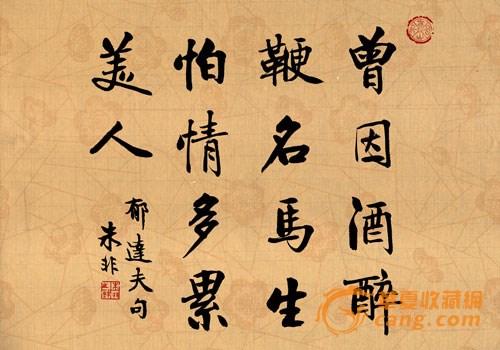 曾因酒醉
鞭名馬生
怕情多累
美人
郁達夫句
朱非
華夏收藏網
cang.com